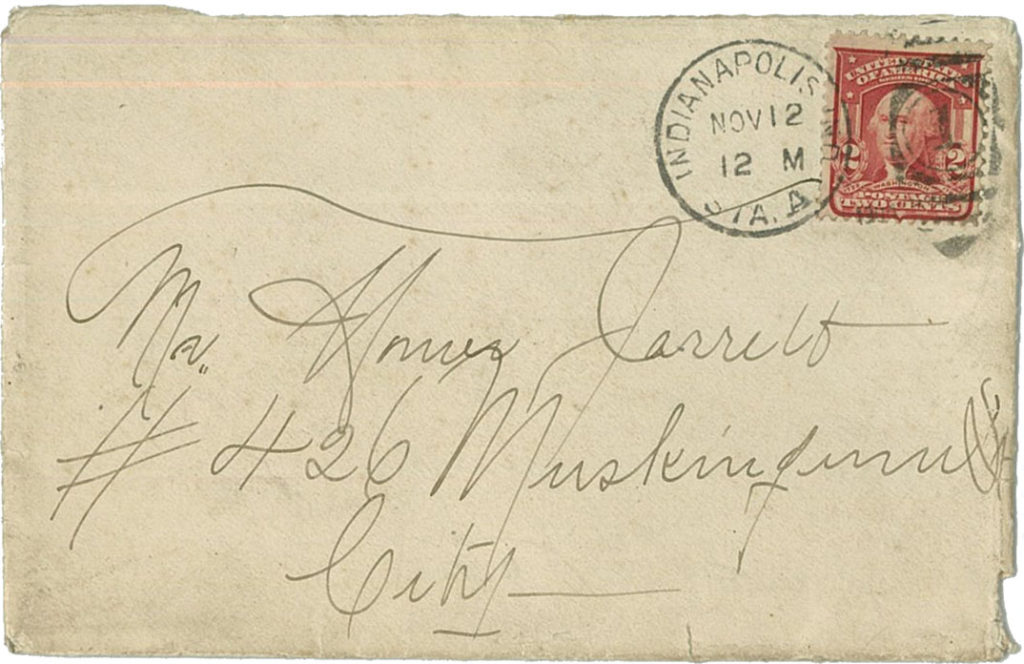 INDIANAPOLIS, IND.
NOV 12
12 M
STA. A
UNITED STATES
OF AMERICA
2 2
WASHINGTON
TWO CENTS
Mr. Homer Jarrett
# 426 Muskingum St
City